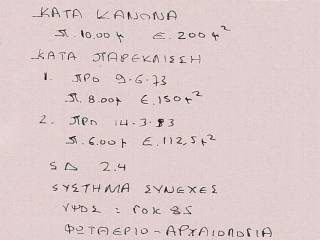 ΚΑΤΑ ΚΑΝΟΝΑ
Π. 10,00 μ Ε. 200 μ²
ΚΑΤΑ ΠΑΡΕΚΛΙΣΣΗ
1. ΠΡΟ 9-6-73
Π. 8.00μ Ε. 150μ²
2. ΠΡΟ 14-3-83
Π. 6.00μ Ε. 112,5μ²
ΣΔ 2.4
ΣΥΣΤΗΜΑ ΣΥΝΕΧΕΣ
ΥΨΟΣ : ΓΟΚ 85
ΦΩΤΑΕΡΙΟ-ΑΡΧΑΙΟΛΟΓΙΑ